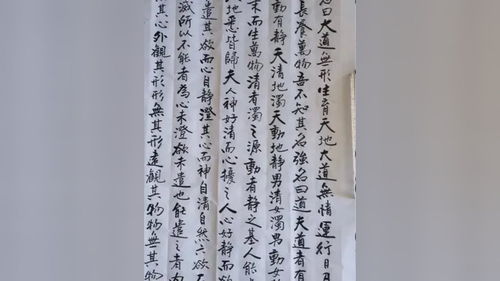 曰大道無形生育天地大道無情運行日月
長養萬物吾不知其名強名曰道夫道者有
動有靜天清地濁天動地靜男清女濁男動女
末而生萬物清者濁之源動者靜之基人能
地悉皆歸夫人神好清而心擾之人心好靜而欲
遣其欲而心自靜澄其心而神自清自然六欲
滅所以不能者為心未澄欲未遣也能遣之者內
其心外觀其形形無其形遠觀其物物無其物